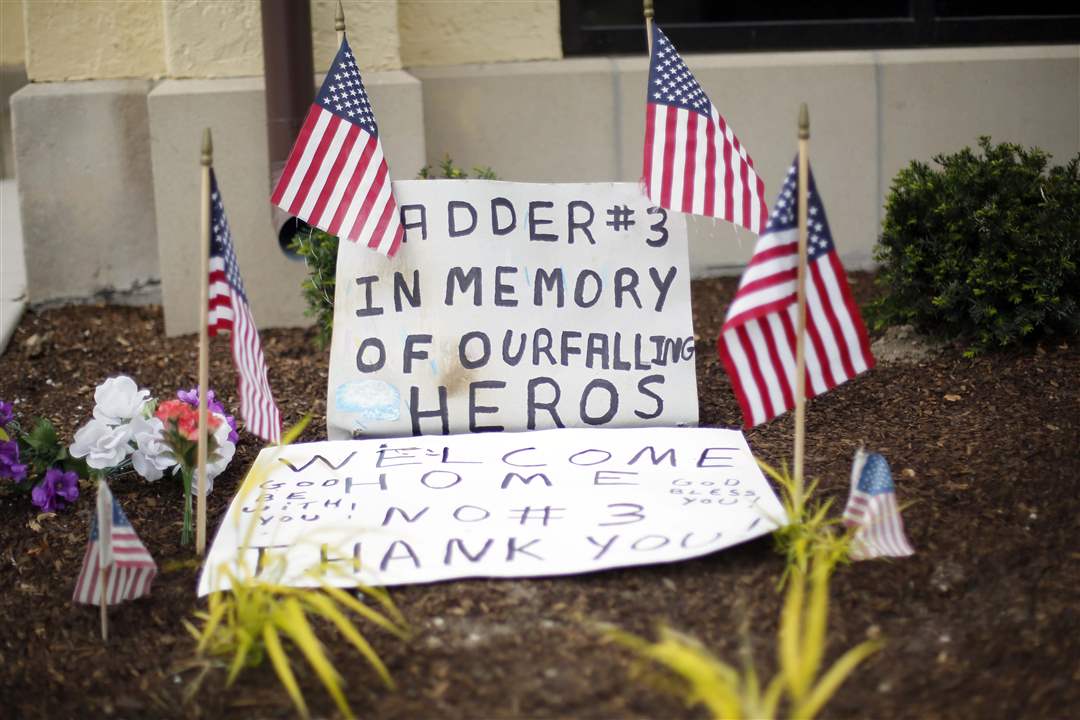 ADDER #3
IN MEMORY
OF OUR FALLING
HEROS
WELCOME
HOME
GOD
BE
WITH!
YOU!
GOD
BLESS
YOU!
NO# 3
THANK YOU